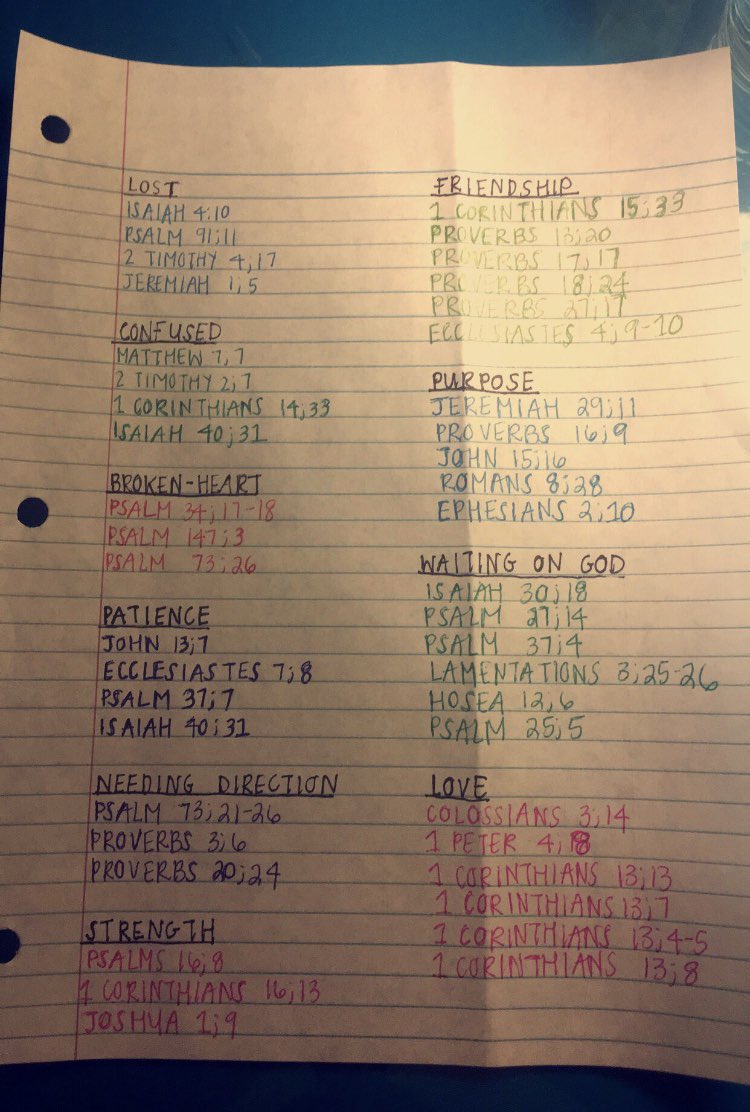 LOST
ISAIAH 4:10
PSALM 91;11
2 TIMOTHY 4,17
JEREMIAH 1;5
CONFUSED
MATTHEW 7,7
2 TIMOTHY 2;7
1 CORINTHIANS 14;33
ISAIAH 40;31
BROKEN-HEART
PSALM 34;17-18
PSALM 147;3
PSALM 73;26
PATIENCE
JOHN 13;7
ECCLESIASTES 7;8
PSALM 37;7
ISAIAH 40;31
NEEDING DIRECTION
PSALM 73;21-26
PROVERBS 3;6
PROVERBS 20;24
STRENGTH
PSALMS 16;8
1 CORINTHIANS 16;13
JOSHUA 1;9
FRIENDSHIP
1 CORINTHIANS 15;33
PROVERBS 13;20
PROVERBS 17;17
PROVERBS 18;24
PROVERBS 27;17
ECCLESIASTES 4;9-10
PURPOSE
JEREMIAH 29;11
PROVERBS 16;9
JOHN 15;16
ROMANS 8;28
EPHESIANS 2;10
WAITING ON GOD
ISAIAH 30;18
PSALM 27;14
PSALM 37;4
LAMENTATIONS 3;25-26
HOSEA 12,6
PSALM 25;5
LOVE
COLOSSIANS 3;14
1 PETER 4;8
1 CORINTHIANS 13;13
1 CORINTHIANS 13;7
1 CORINTHIANS 13;4-5
1 CORINTHIANS 13;8